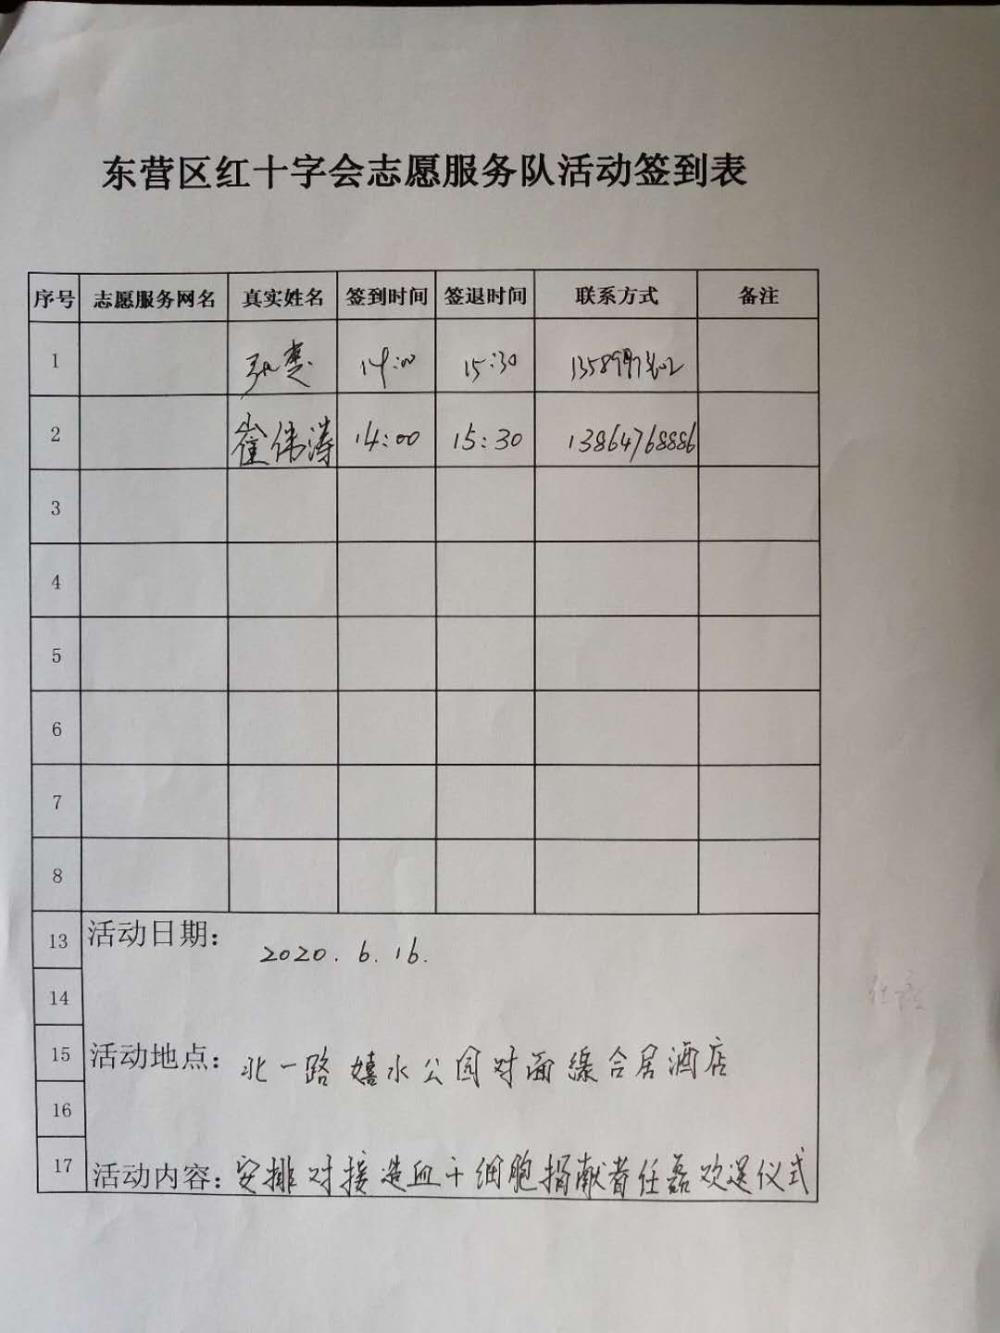 东营区红十字会志愿服务队活动签到表
序号 志愿服务网名 真实姓名 签到时间 签退时间 联系方式 备注
1 14:00 15:30
2 崔伟涛 14:00 15:30 13864768886
3
4
5
6
7
8
13 活动日期: 2020.6.16.
14
15 活动地点: 北一路嬉水公园对面缘合居酒店
16
17 活动内容: 安排对接造血干细胞捐献者任磊欢送仪式